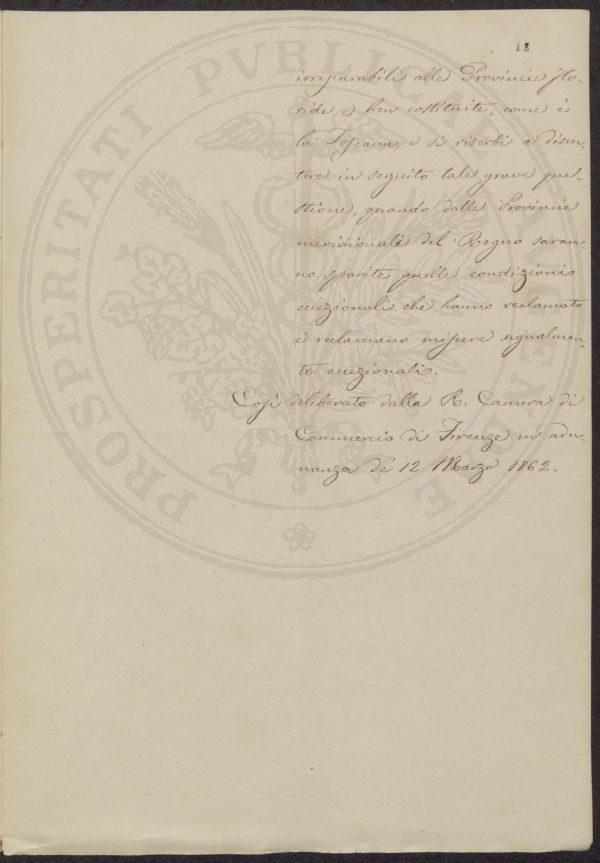 18
irreparabili alle Provincie flo-
ride e ben costituite, come è
la Toscana, e si riserbi a discu-
tere in seguito tale grave que-
stione, quando dalle Provincie
meridionali del Regno saran-
no sparite quelle condizioni
eccezionali che hanno reclamato
e reclamano misure ugualmen-
te eccezionali.
Così deliberato dalla R. Camera di
Commercio di Firenze in adu-
nanza de' 12 Marzo 1862.
PROSPERITATI PVBLICAE